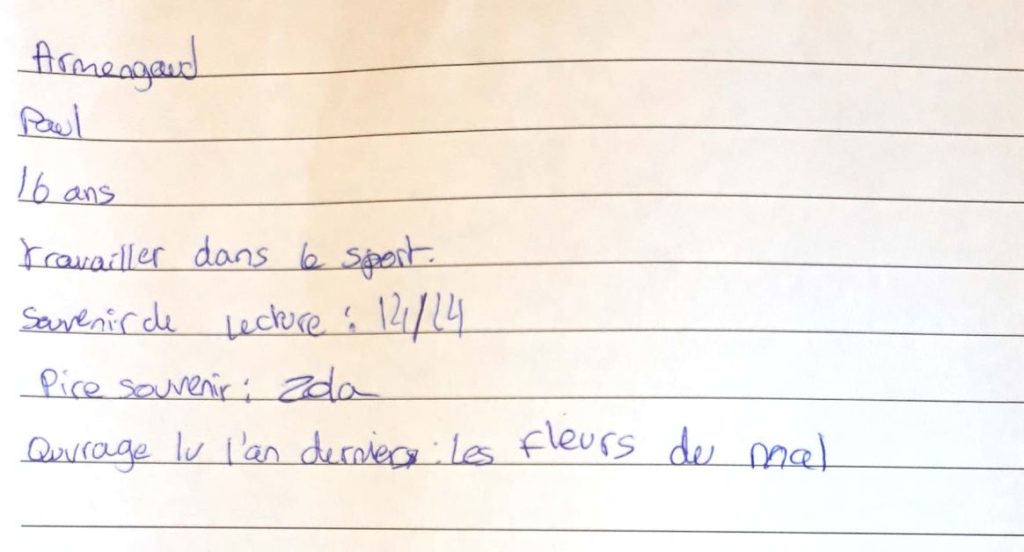 Armengaud
Paul
16 ans
travailler dans le sport.
Souvenir de lecture : 14/14
Pire souvenir : Zola
Ouvrage lu l'an dernier : Les fleurs du mal